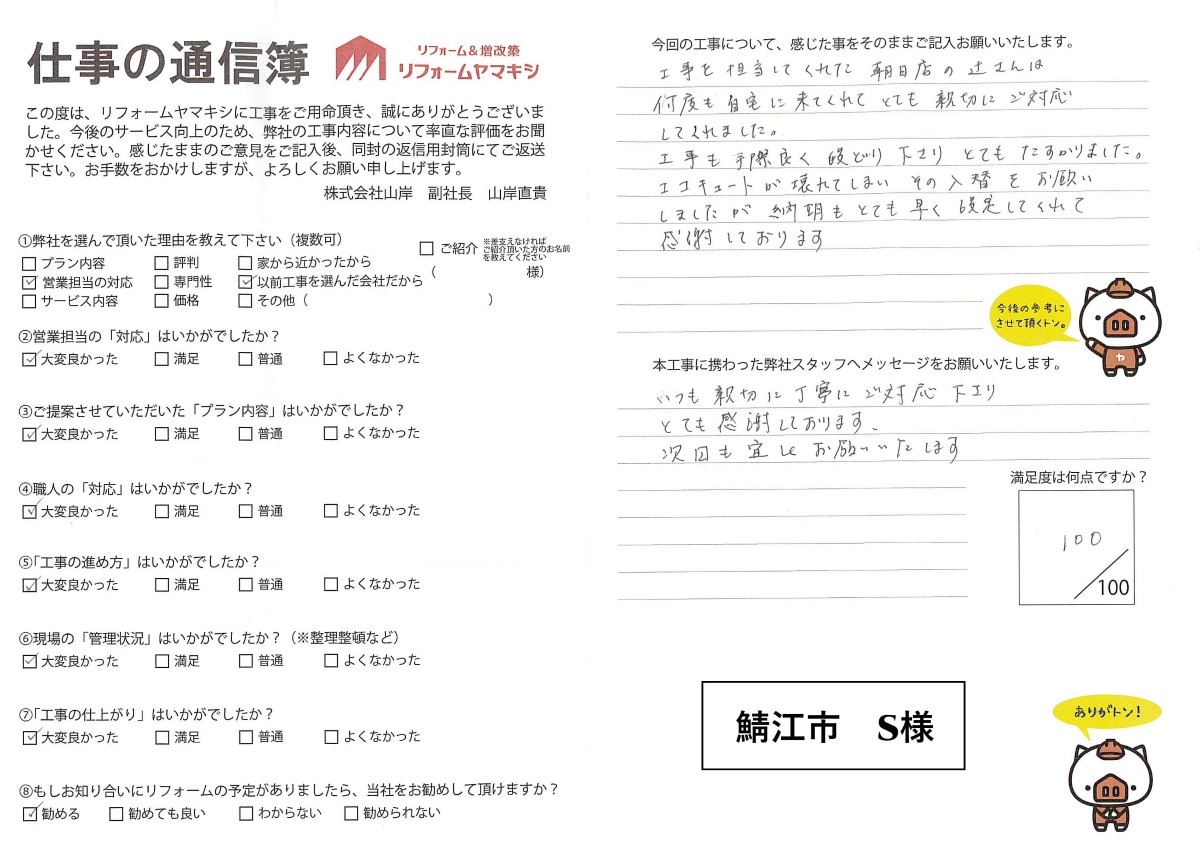 仕事の通信簿
リフォーム＆増改築
リフォームヤマキシ
この度は、リフォームヤマキシに工事をご用命頂き、誠にありがとうございま
した。今後のサービス向上のため、弊社の工事内容について率直な評価をお聞
かせください。感じたままのご意見をご記入後、同封の返信用封筒にてご返送
下さい。お手数をおかけしますが、よろしくお願い申し上げます。
株式会社山岸　副社長　山岸直貴
①弊社を選んで頂いた理由を教えて下さい（複数可）
□ ご紹介 ※差支えなければ
ご紹介頂いた方のお名前
を教えてください
（　　　　　　様）
□ プラン内容 □ 評判 □ 家から近かったから
☑ 営業担当の対応 □ 専門性 ☑ 以前工事を選んだ会社だから
□ サービス内容 □ 価格 □ その他（　　　　　　）
②営業担当の「対応」はいかがでしたか？
☑ 大変良かった □ 満足 □ 普通 □ よくなかった
③ご提案させていただいた「プラン内容」はいかがでしたか？
☑ 大変良かった □ 満足 □ 普通 □ よくなかった
④職人の「対応」はいかがでしたか？
☑ 大変良かった □ 満足 □ 普通 □ よくなかった
⑤「工事の進め方」はいかがでしたか？
☑ 大変良かった □ 満足 □ 普通 □ よくなかった
⑥現場の「管理状況」はいかがでしたか？（※整理整頓など）
☑ 大変良かった □ 満足 □ 普通 □ よくなかった
⑦「工事の仕上がり」はいかがでしたか？
☑ 大変良かった □ 満足 □ 普通 □ よくなかった
⑧もしお知り合いにリフォームの予定がありましたら、当社をお勧めして頂けますか？
☑ 勧める □ 勧めても良い □ わからない □ 勧められない
今回の工事について、感じた事をそのままご記入お願いいたします。
工事を担当してくれた 朝日店の辻さんは
何度も自宅に来てくれて とても 親切に ご対応
してくれました。
工事も手際良く 段どり下さり とても たすかりました。
エコキュートが壊れてしまい その入替をお願い
しましたが 納期もとても早く 設定してくれて
感謝しております
今後の参考に
させて頂くトン。
ヤ
本工事に携わった弊社スタッフへメッセージをお願いいたします。
いつも 親切に丁寧に ご対応 下さり
とても感謝しております。
次回も宜しくお願いいたします
満足度は何点ですか？
100
/100
鯖江市　S様
ありがトン！